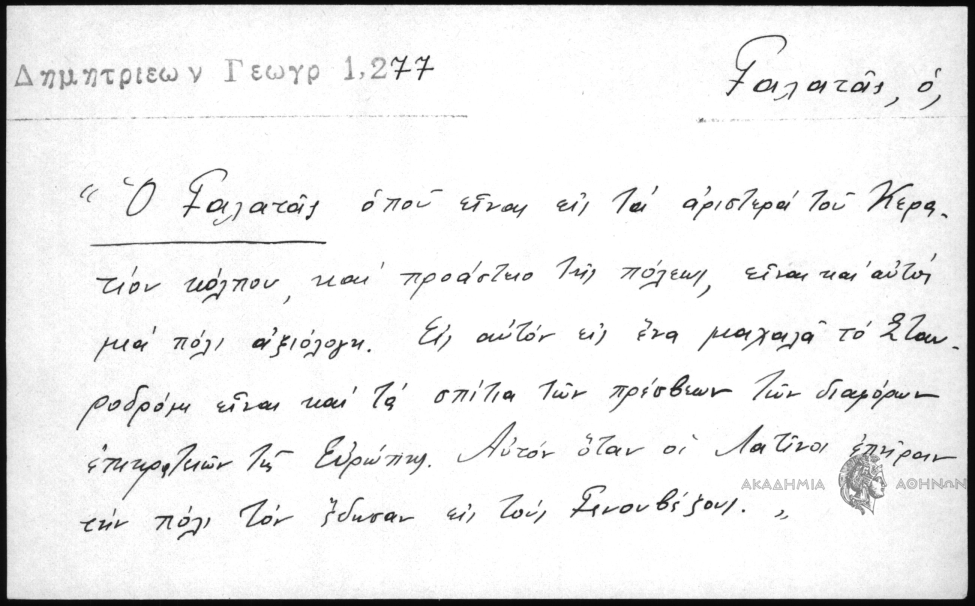 Δημητριεων Γεωγρ 1,277
Γαλατᾶς, ὁ,
“Ὁ Γαλατᾶς ὁποῦ εἶναι εἰς τά ἀριστερά τοῦ Κερα-
τίου κόλπου, καί προάστειο τῆς πόλεως, εἶναι καί αὐτός
μιά πόλι ἀξιόλογη. Εἰς αὐτόν εἰς ἕνα μαχαλᾶ τό Σταυ-
ροδρόμι εἶναι καί τά σπίτια τῶν πρέσβεων τῶν διαφόρων
ἐπικρατειῶν τῆς Εὐρώπης. Αὐτόν ὅταν οἱ Λατῖνοι ἐπῆραν
τήν πόλι τόν ἔδωσαν εἰς τούς Γενουβέζους. „
ΑΚΑΔΗΜΙΑ ΑΘΗΝΩΝ